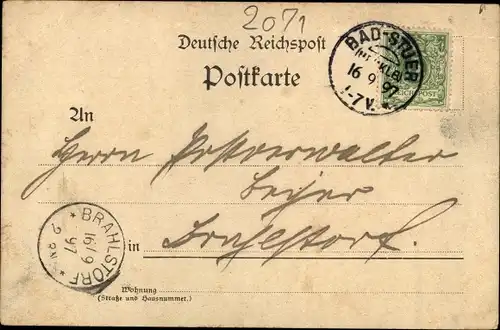 2071
Deutsche Reichspost
Postkarte
BAD-STUER
16 9 97
1-7V.
REICHSPOST
An
Herrn Postverwalter
in Brahlstorf
* BRAHLSTORF *
16/9
97
Wohnung
(Straße und Hausnummer.)